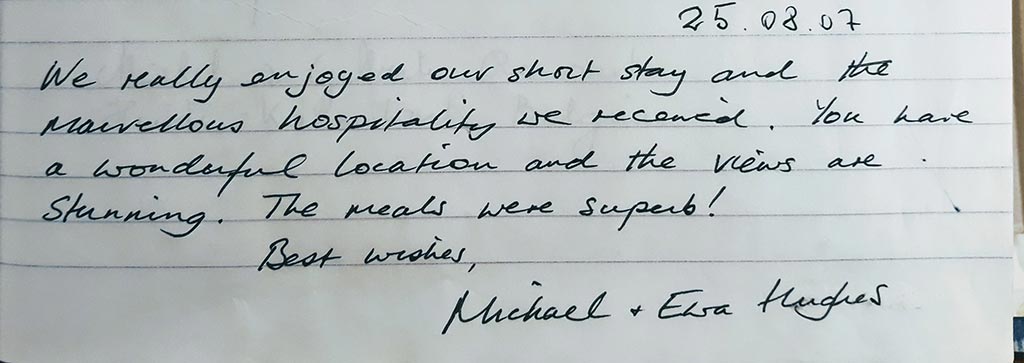 25.08.07
We really enjoyed our short stay and the
marvellous hospitality we received. You have
a wonderful location and the views are
stunning. The meals were superb!
Best wishes,
Michael + Ewa Hughes